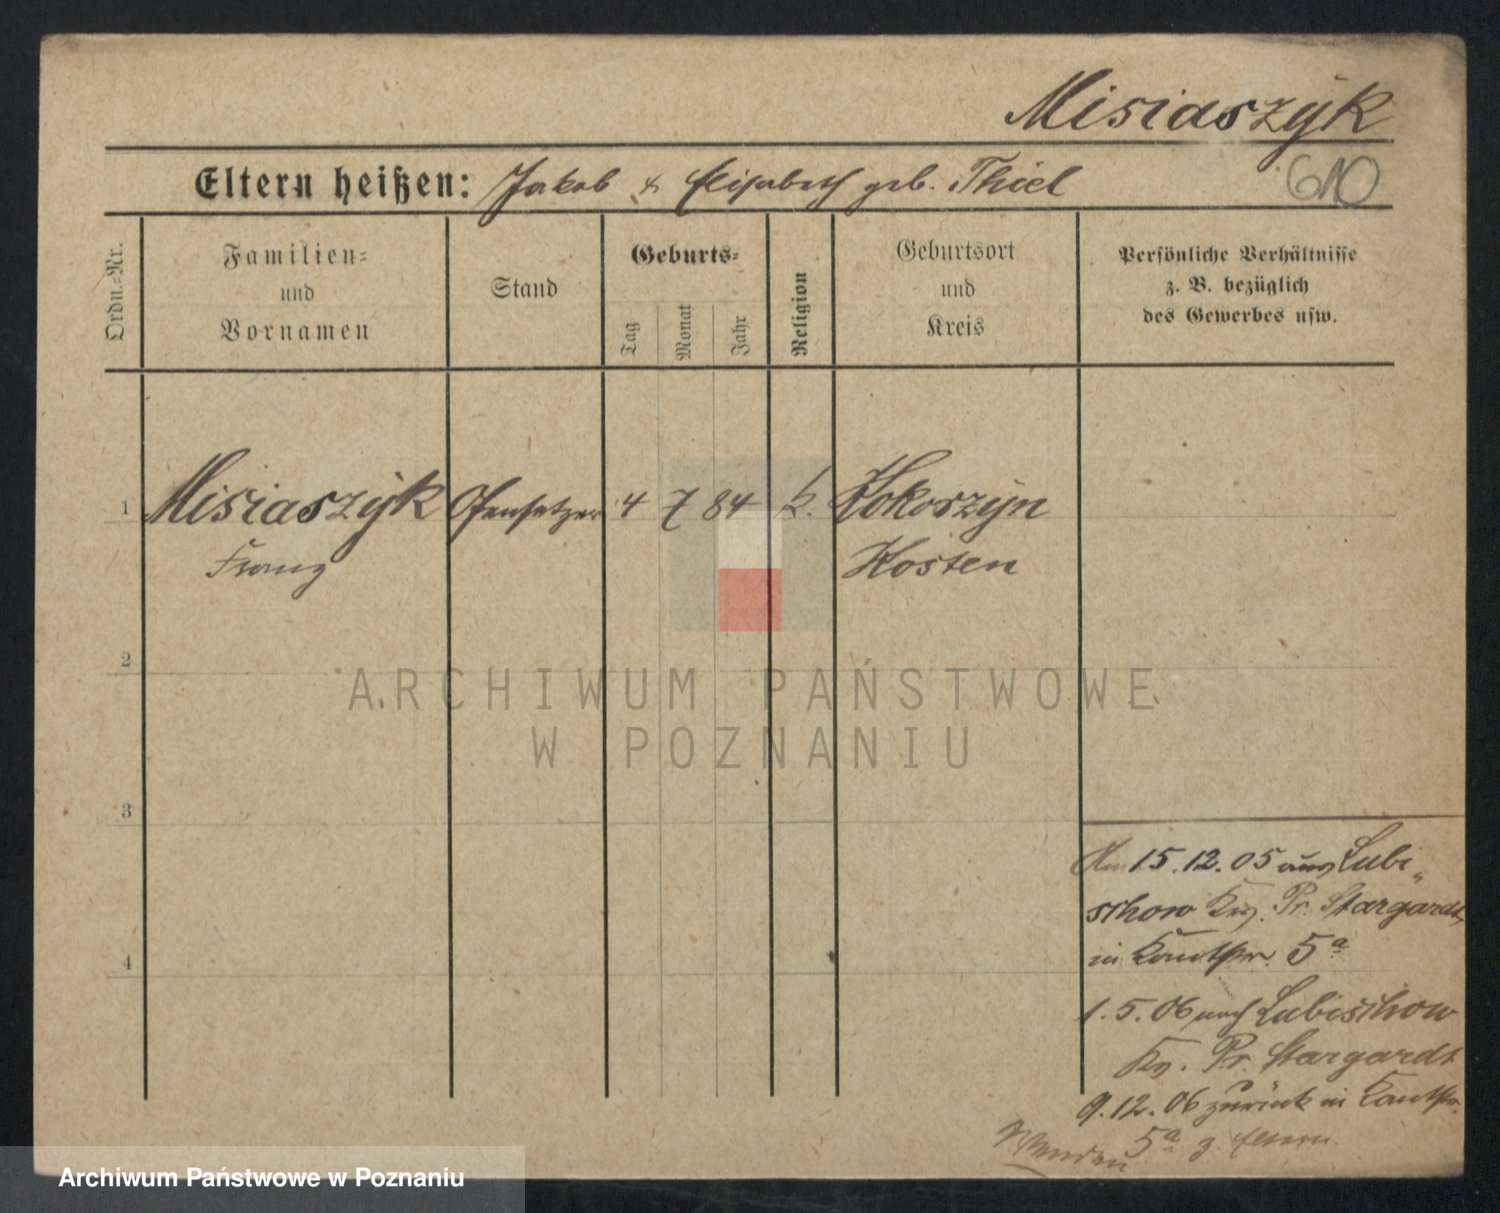 Misiaszÿk
Eltern heißen: Jakob & Elisabeth geb. Thiel
610
Ordn.=Nr.
Familien=
und
Vornamen
Stand
Geburts=
Tag
Monat
Jahr
Religion
Geburtsort
und
Kreis
Persönliche Verhältnisse
z. B. bezüglich
des Gewerbes usw.
1 Misiaszÿk Ofensetzer 4 7 84 k. Kokorzÿn
Franz Kosten
2
3
4
Am 15.12.05 aus Lubi„
schow Krs. Pr. Stargardt
in Kantstr. 5a
1.5.06 nach Lubischow
Krs. Pr. Stargardt
9.12.06 zurück in Kantstr.
5a z. Eltern.
Wenden
ARCHIWUM PAŃSTWOWE
W POZNANIU
Archiwum Państwowe w Poznaniu